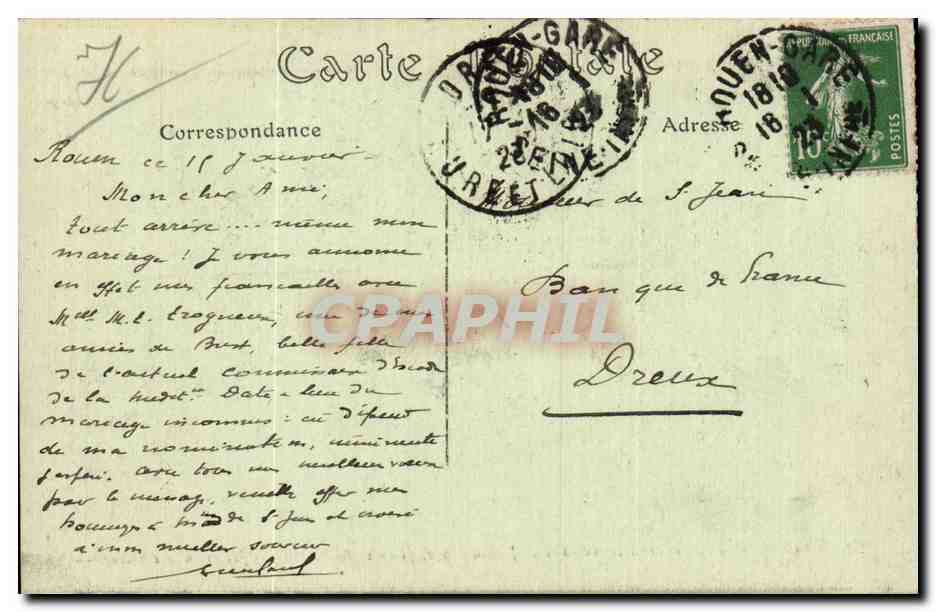 Carte Postale
Correspondance
Adresse
RÉPUBLIQUE FRANÇAISE
10c
POSTES
ROUEN-GARE
18 10
16 - 1
23
SEINE-INFRE
DREUX
EURE ET L
CPAPHIL
Rouen ce 15 Janvier
Mon cher Ami,
tout arrive .... même mon
mariage ! Je vous annonce
en effet mes fiançailles avec
Melle M. L. une de mes
amies de Brest, belle fille
de l'actuel commissaire d'Escadre
de la Medit. Date & lieu du
mariage inconnus : ça dépend
de ma nomination, imminente
j'espère. Avec tous mes meilleurs voeux
pour le ménage, veuillez offrir mes
hommages à Mme de St Jean et croire
à mon meilleur souvenir
Monsieur de St Jean
Banque de France
Dreux